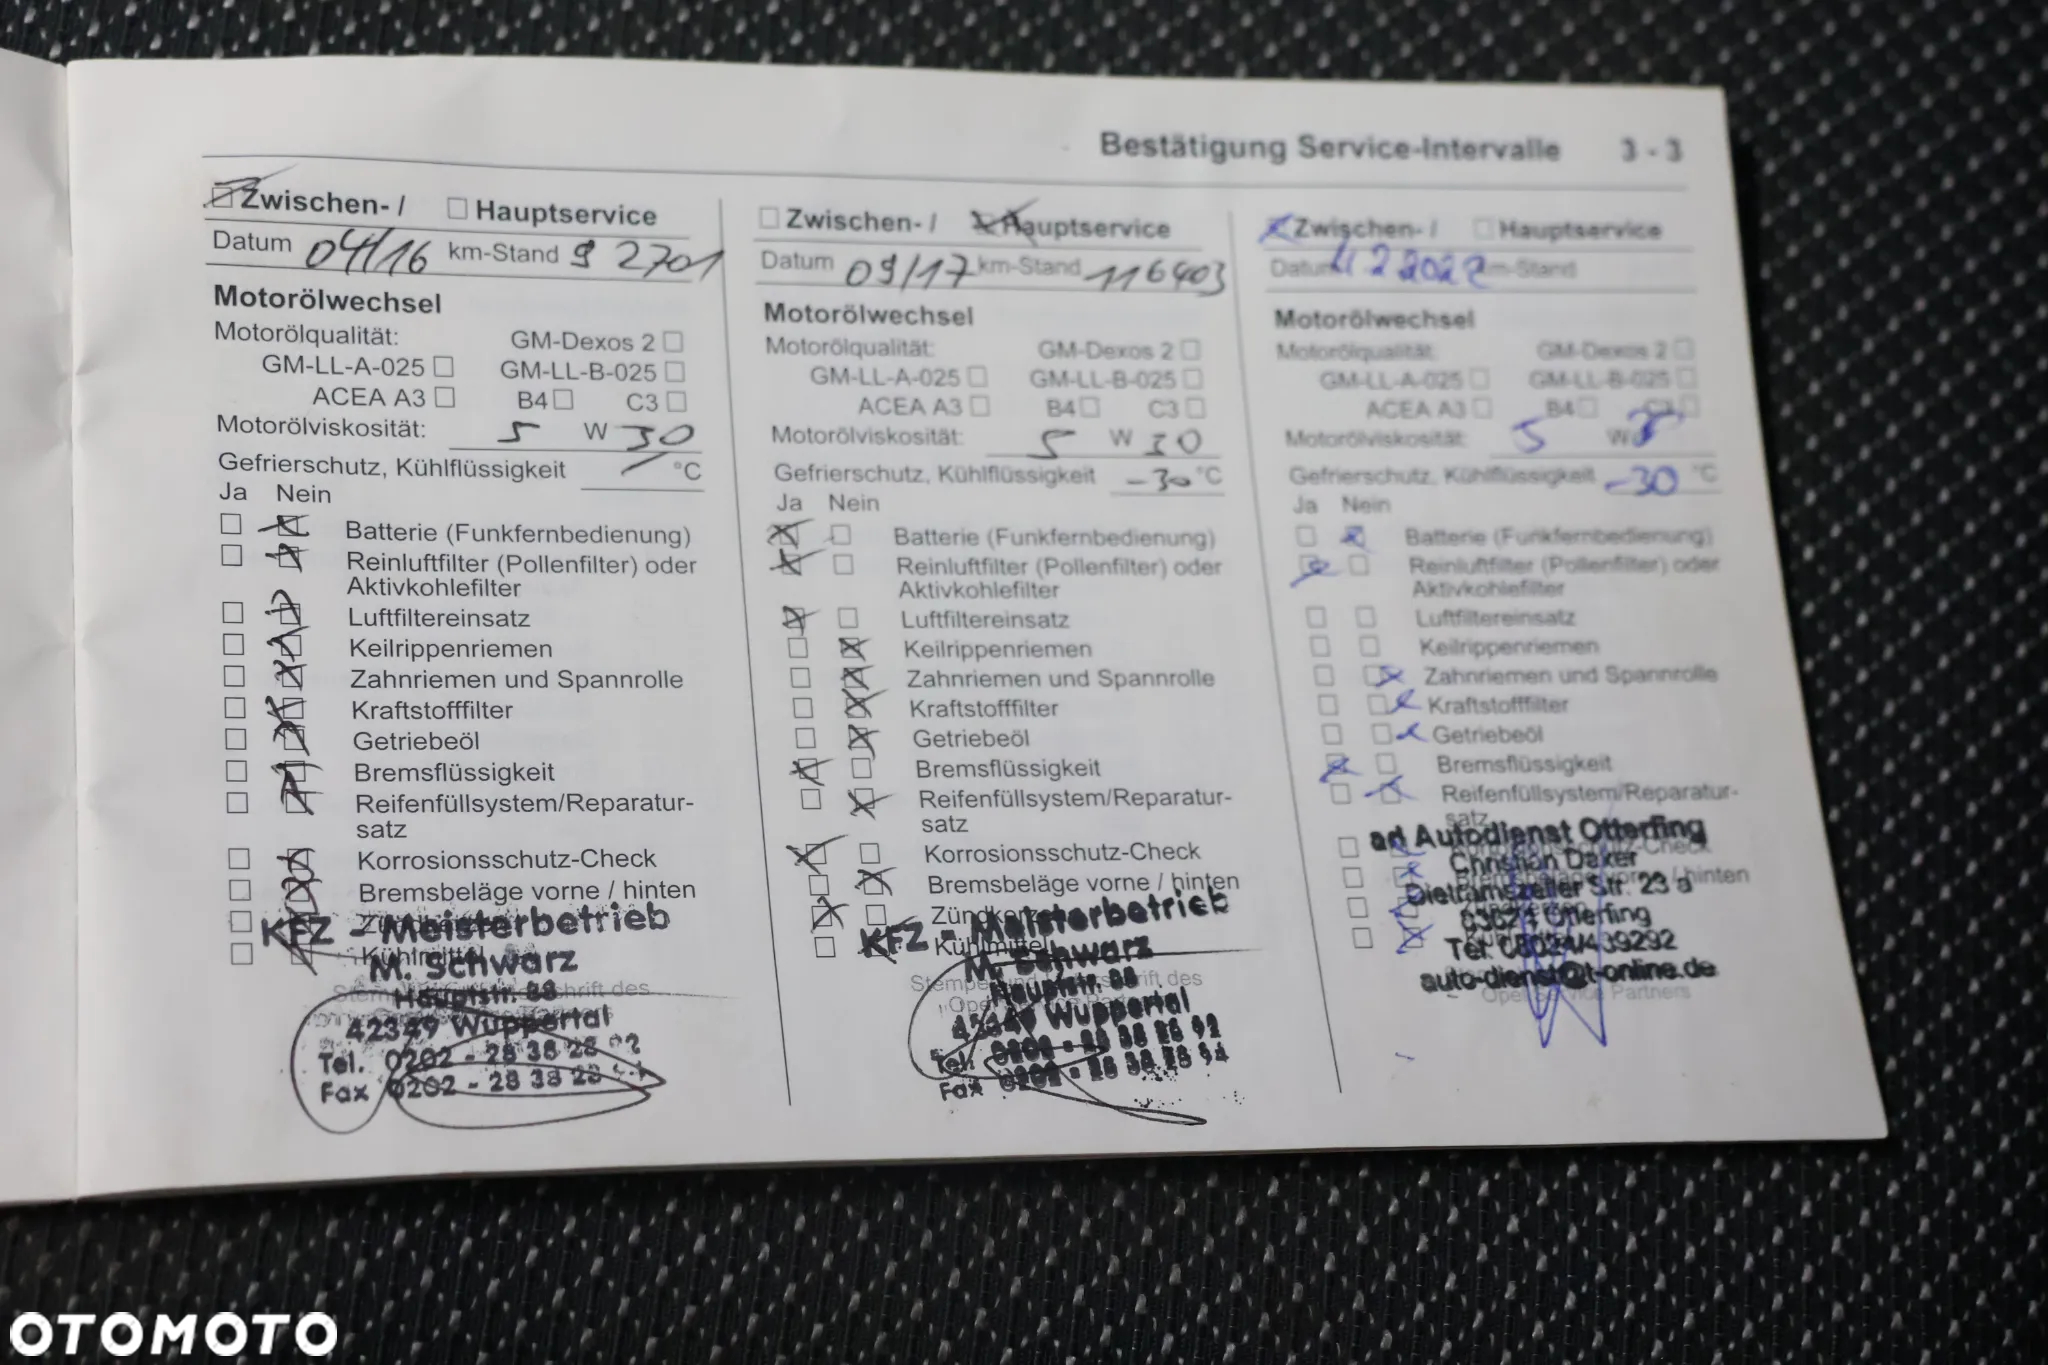 Bestätigung Service-Intervalle 3 - 3
Zwischen- / Hauptservice
Datum 04/16 km-Stand 92701
Motorölwechsel
Motorölqualität: GM-Dexos 2
GM-LL-A-025 GM-LL-B-025
ACEA A3 B4 C3
Motorölviskosität: 5 W 30
Gefrierschutz, Kühlflüssigkeit / °C
Ja Nein
Batterie (Funkfernbedienung)
Reinluftfilter (Pollenfilter) oder
Aktivkohlefilter
Luftfiltereinsatz
Keilrippenriemen
Zahnriemen und Spannrolle
Kraftstofffilter
Getriebeöl
Bremsflüssigkeit
Reifenfüllsystem/Reparatur-
satz
Korrosionsschutz-Check
Bremsbeläge vorne / hinten
KFZ - Meisterbetrieb
Kühlmittel
M. Schwarz
Hauptstr. 88
42349 Wuppertal
Tel. 0202 - 28 38 28
Fax 0202 - 28 38 28
Zwischen- / Hauptservice
Datum 09/17 km-Stand 116403
Motorölwechsel
Motorölqualität: GM-Dexos 2
GM-LL-A-025 GM-LL-B-025
ACEA A3 B4 C3
Motorölviskosität: 5 W 30
Gefrierschutz, Kühlflüssigkeit -30 °C
Ja Nein
Batterie (Funkfernbedienung)
Reinluftfilter (Pollenfilter) oder
Aktivkohlefilter
Luftfiltereinsatz
Keilrippenriemen
Zahnriemen und Spannrolle
Kraftstofffilter
Getriebeöl
Bremsflüssigkeit
Reifenfüllsystem/Reparatur-
satz
Korrosionsschutz-Check
Bremsbeläge vorne / hinten
Zündkerzen
KFZ - Meisterbetrieb
Kühlmittel
M. Schwarz
Hauptstr. 88
42349 Wuppertal
Tel.
Fax
Zwischen- / Hauptservice
Datum 4 2 2022 km-Stand
Motorölwechsel
Motorölqualität: GM-Dexos 2
GM-LL-A-025 GM-LL-B-025
ACEA A3 B4 C3
Motorölviskosität: 5 W
Gefrierschutz, Kühlflüssigkeit -30 °C
Ja Nein
Batterie (Funkfernbedienung)
Reinluftfilter (Pollenfilter) oder
Aktivkohlefilter
Luftfiltereinsatz
Keilrippenriemen
Zahnriemen und Spannrolle
Kraftstofffilter
Getriebeöl
Bremsflüssigkeit
Reifenfüllsystem/Reparatur-
satz
ad Autodienst Otterfing
Christian Daxer
Dietramszeller Str. 23 a
83624 Otterfing
Tel. 08024/439292
auto-dienst@t-online.de
Opel Service Partners
OTOMOTO